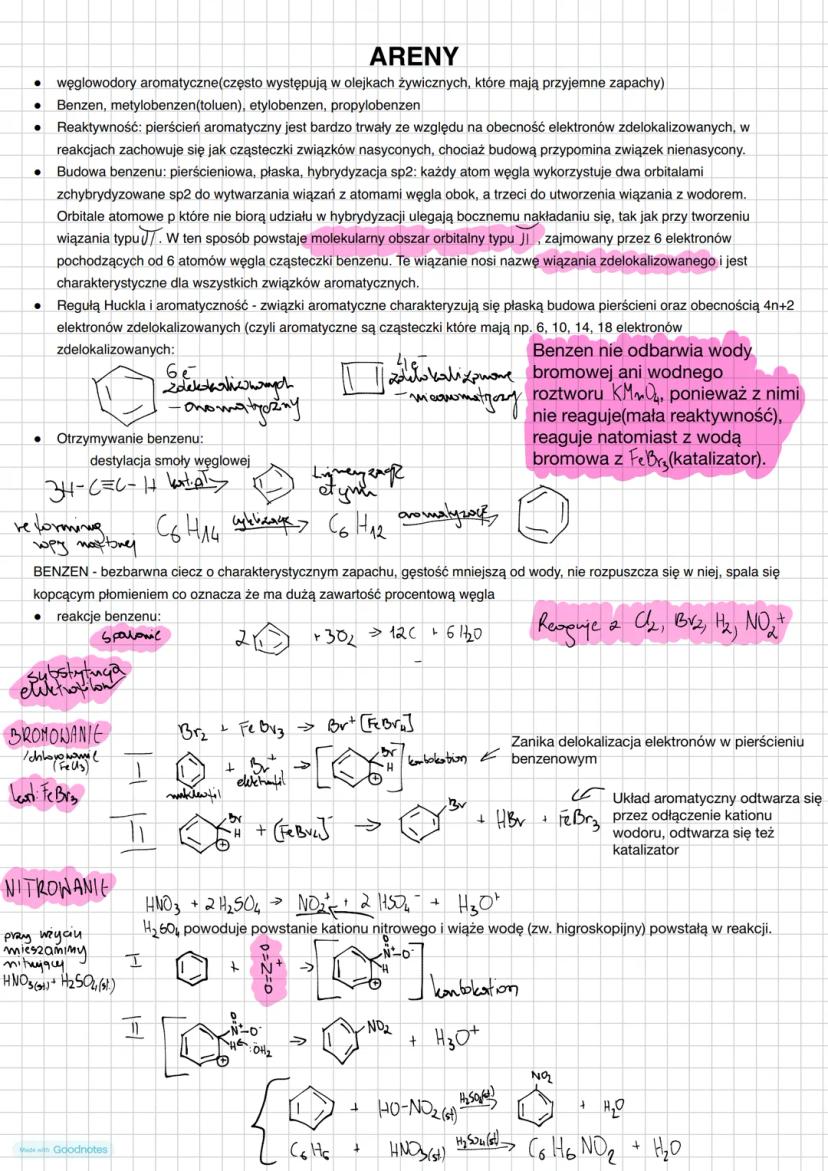 ARENY
● węglowodory aromatyczne(często występują w olejkach żywicznych, które mają przyjemne zapachy)
● Benzen, metylobenzen(toluen), etylobenzen, propylobenzen
● Reaktywność: pierścień aromatyczny jest bardzo trwały ze względu na obecność elektronów zdelokalizowanych, w
reakcjach zachowuje się jak cząsteczki związków nasyconych, chociaż budową przypomina związek nienasycony.
● Budowa benzenu: pierścieniowa, płaska, hybrydyzacja sp2: każdy atom węgla wykorzystuje dwa orbitalami
zchybrydyzowane sp2 do wytwarzania wiązań z atomami węgla obok, a trzeci do utworzenia wiązania z wodorem.
Orbitale atomowe p które nie biorą udziału w hybrydyzacji ulegają bocznemu nakładaniu się, tak jak przy tworzeniu
wiązania typu π. W ten sposób powstaje molekularny obszar orbitalny typu π, zajmowany przez 6 elektronów
pochodzących od 6 atomów węgla cząsteczki benzenu. Te wiązanie nosi nazwę wiązania zdelokalizowanego i jest
charakterystyczne dla wszystkich związków aromatycznych.
● Regułą Huckla i aromatyczność - związki aromatyczne charakteryzują się płaską budowa pierścieni oraz obecnością 4n+2
elektronów zdelokalizowanych (czyli aromatyczne są cząsteczki które mają np. 6, 10, 14, 18 elektronów
zdelokalizowanych:
6e⁻
zdelokalizowanych
- aromatyczny
4e⁻
zdelokalizowane
- niearomatyczny
Benzen nie odbarwia wody
bromowej ani wodnego
roztworu KMnO₄, ponieważ z nimi
nie reaguje(mała reaktywność),
reaguje natomiast z wodą
bromowa z FeBr₃(katalizator).
● Otrzymywanie benzenu:
destylacja smoły węglowej
3H-C≡C-H kat. ΔT →
trimeryzacja
etynu
reforming
ropy naftowej
C₆H₁₄ cyklizacja → C₆H₁₂ aromatyzacja →
BENZEN - bezbarwna ciecz o charakterystycznym zapachu, gęstość mniejszą od wody, nie rozpuszcza się w niej, spala się
kopcącym płomieniem co oznacza że ma dużą zawartość procentową węgla
● reakcje benzenu:
spalanie
2 + 3O₂ → 12C + 6H₂O
Reaguje z Cl₂, Br₂, H₂, NO₂⁺
substytucja
elektrofilow
BROMOWANIE
/chlorowanie
(FeCl₃)
kat: FeBr₃
Br₂ + FeBr₃ → Br⁺[FeBr₄]
I
+ Br⁺ → [Br H ⊕] karbokation
nukleofil elektrofil
Zanika delokalizacja elektronów w pierścieniu
benzenowym
II
Br H ⊕ + [FeBr₄]⁻ → Br + HBr + FeBr₃
Układ aromatyczny odtwarza się
przez odłączenie kationu
wodoru, odtwarza się też
katalizator
NITROWANIE
HNO₃ + 2H₂SO₄ → NO₂⁺ + 2HSO₄⁻ + H₃O⁺
H₂SO₄ powoduje powstanie kationu nitrowego i wiąże wodę (zw. higroskopijny) powstałą w reakcji.
przy użyciu
mieszaniny
nitrującej
HNO₃(st.) + H₂SO₄(st.)
I
+ O=N⁺=O → [O N⁺-O⁻ H ⊕] karbokation
II
[O N⁺-O⁻ H :OH₂ ⊕] → NO₂ + H₃O⁺
+ HO-NO₂(st) H₂SO₄(st) → NO₂ + H₂O
C₆H₆ + HNO₃(st) H₂SO₄(st) → C₆H₆NO₂ + H₂O
Made with Goodnotes